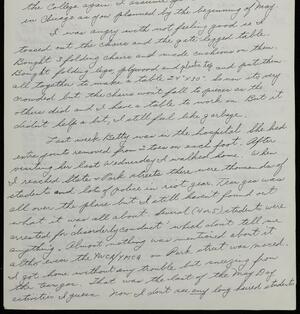 the College again I assume
in Chicago as you planned by the beginning of May.
I was angry with not feeling good so I
tossed out the chairs and the gate legged table.
Bought 3 folding chairs and made cushions on them.
Bought folding legs, plywood and and put them
all together to make a table 24"x30". So now its very
crowded but the chairs won't fall to pieces as the
others did and I have a table to work on. But it
didn't help a bit, I still feel like garbage.
Last week Betty was in the hospital. She had
extra joints removed from 2 toes on each foot. After
visiting her last Wednesday I walked home. When
I reached State & Park streets there were thousands of
students and lots of police in riot gear. Tear gas was
all over the place but I still haven't found out
what it was all about. Several (4 or 5) students were
arrested for "disorderly conduct" which doesn't tell me
anything. Almost nothing was mentioned about it
altho even the YWCA/YMCA on Park street was maced.
I got home without any trouble but sneezing from
the teargas. That was the last of the May Day
activities I guess. Now I don't see any long haired students